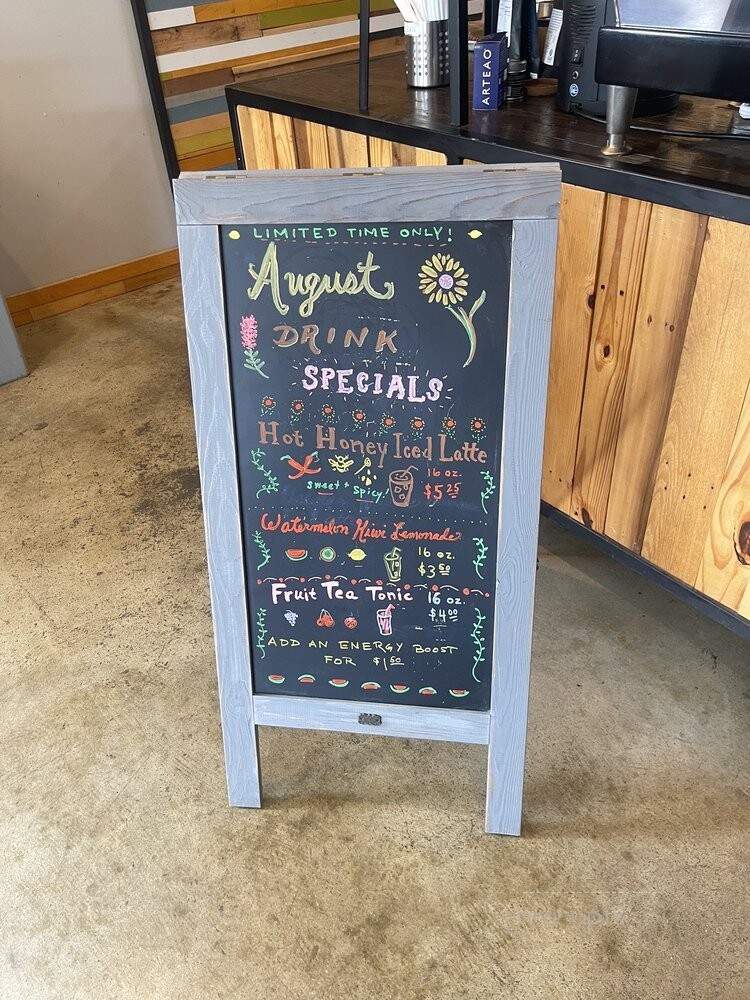 ARTEAO
LIMITED TIME ONLY!
August
DRINK
SPECIALS
Hot Honey Iced Latte
sweet + spicy!
16 oz.
$5 25
Watermelon Kiwi Lemonade
16 oz.
$3 50
Fruit Tea Tonic 16 oz.
$4 00
ADD AN ENERGY BOOST
FOR $1 50